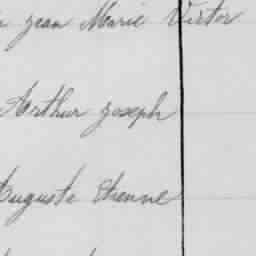 Jean Marie Victor
Arthur Joseph
Auguste Etienne